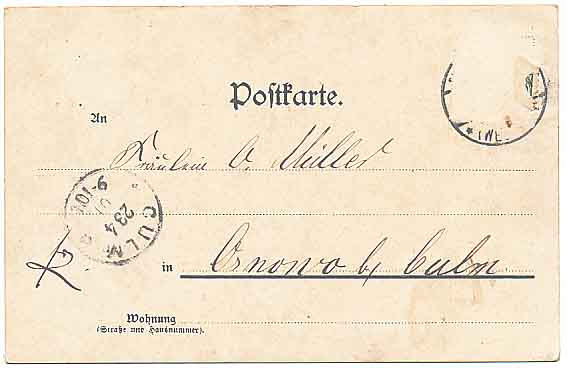 Postkarte.
An
Fräulein O. Müller
CULM
23 4
01
9-10V
in Osnowo b/ Culm
Wohnung
(Straße und Hausnummer).